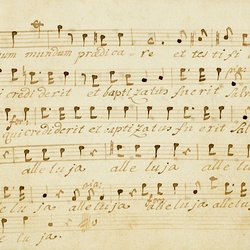 um mundum prædica - re et testifi
crediderit et baptizatus fuerit Salv
Qui crediderit et baptizatus fuerit Sa
alleluja alleluja
le lu ja alleluja alleluja allelu
le lu ja.